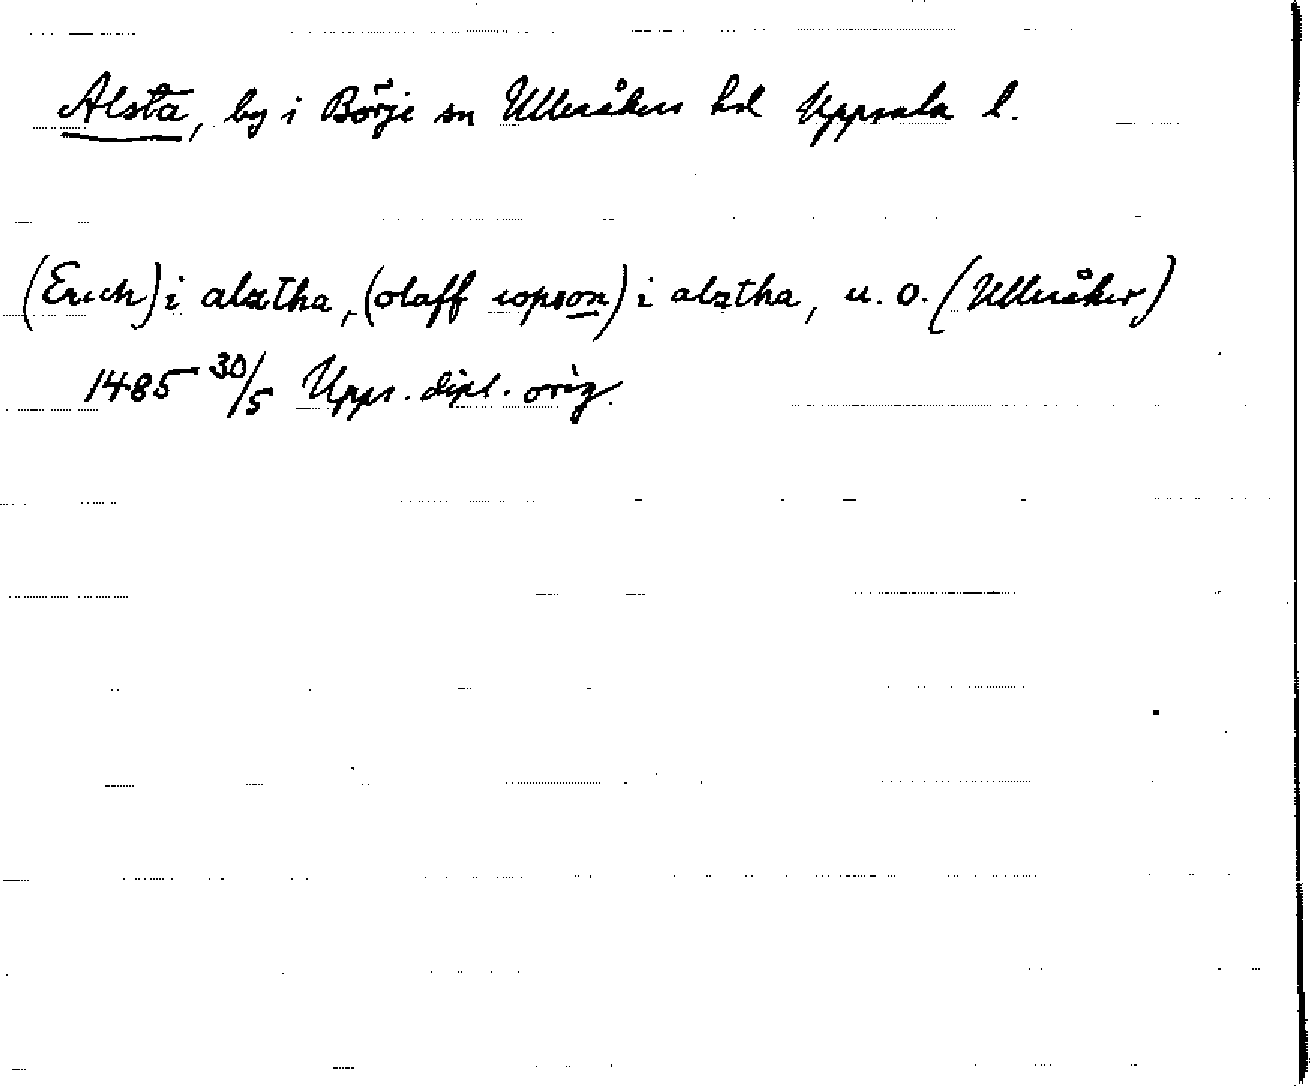 Alsta, by i Börje sn Ulleråkers hd Uppsala l.
(Erich) i alztha, (olaff iopson) i alztha, u. o. (Ulleråker)
1485 30/5 Upps. dipl. orig.